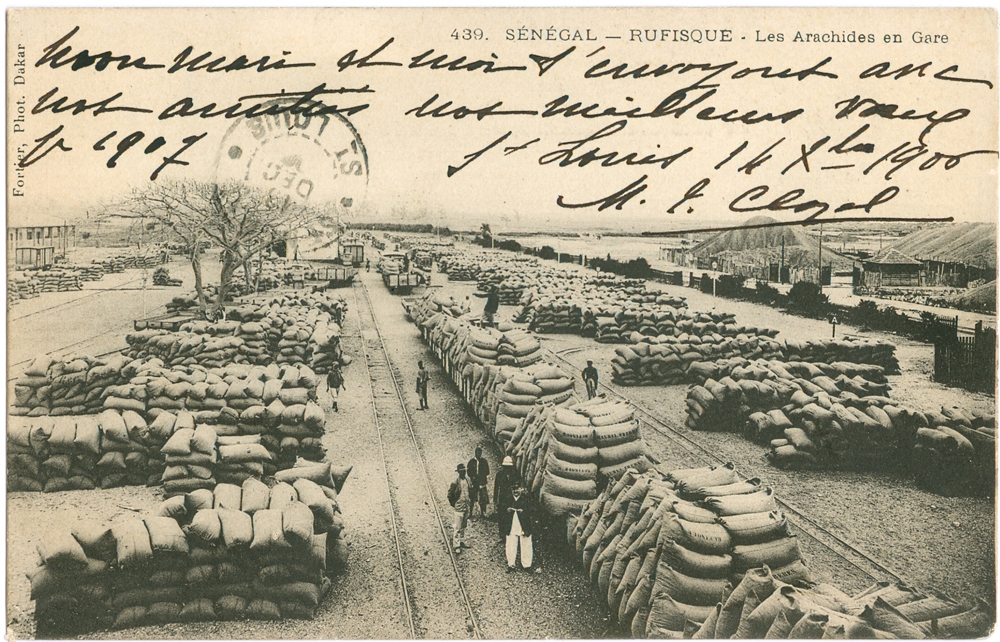 439. SÉNÉGAL — RUFISQUE - Les Arachides en Gare
Fortier, Phot. Dakar
mon mari et moi t'envoyons avec
nos amitiés nos meilleurs vœux
pr 1907
St Louis 14 Xbre 1906
M. J.
ST LOUIS
DEC